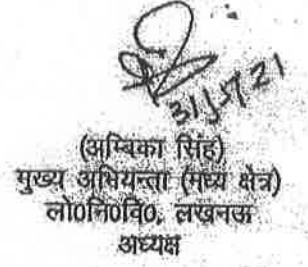 31/5/21
(अम्बिका सिंह)
मुख्य अभियन्ता (मध्य क्षेत्र)
लो0नि0वि0, लखनऊ
अध्यक्ष